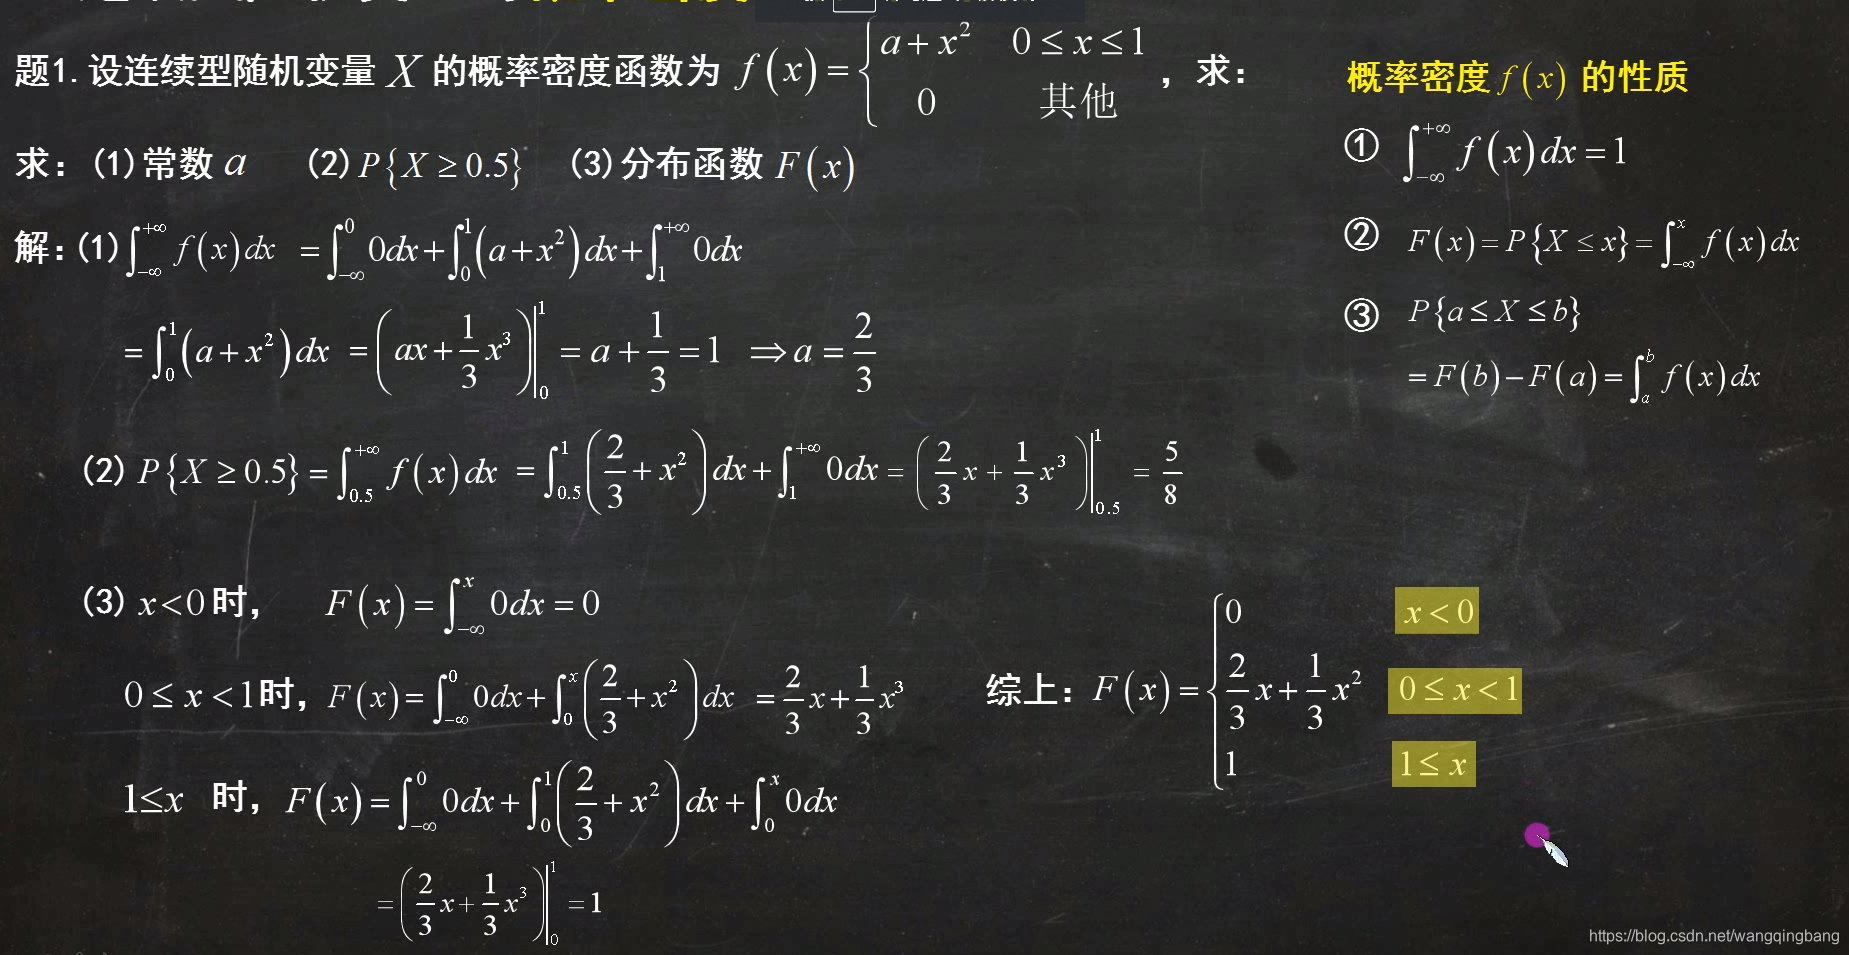 题1.设连续型随机变量 X 的概率密度函数为 f(x)={a+x² 0≤x≤1; 0 其他 ，求：
求：(1)常数 a (2)P{X≥0.5} (3)分布函数 F(x)
解：(1)∫_{-∞}^{+∞} f(x)dx =∫_{-∞}^{0} 0dx+∫_{0}^{1}(a+x²)dx+∫_{1}^{+∞} 0dx
=∫_{0}^{1}(a+x²)dx =(ax+1/3 x³)|_{0}^{1} =a+1/3=1 ⇒a=2/3
(2) P{X≥0.5}=∫_{0.5}^{+∞} f(x)dx =∫_{0.5}^{1}(2/3+x²)dx+∫_{1}^{+∞} 0dx =(2/3 x+1/3 x³)|_{0.5}^{1} =5/8
(3) x<0时， F(x)=∫_{-∞}^{x} 0dx=0
0≤x<1时，F(x)=∫_{-∞}^{0} 0dx+∫_{0}^{x}(2/3+x²)dx =2/3 x+1/3 x³
1≤x 时，F(x)=∫_{-∞}^{0} 0dx+∫_{0}^{1}(2/3+x²)dx+∫_{0}^{x} 0dx
=(2/3 x+1/3 x³)|_{0}^{1} =1
综上：F(x)={0 x<0; 2/3 x+1/3 x² 0≤x<1; 1 1≤x
概率密度 f(x) 的性质
① ∫_{-∞}^{+∞} f(x)dx=1
② F(x)=P{X≤x}=∫_{-∞}^{x} f(x)dx
③ P{a≤X≤b}
=F(b)−F(a)=∫_{a}^{b} f(x)dx
https://blog.csdn.net/wangqingbang